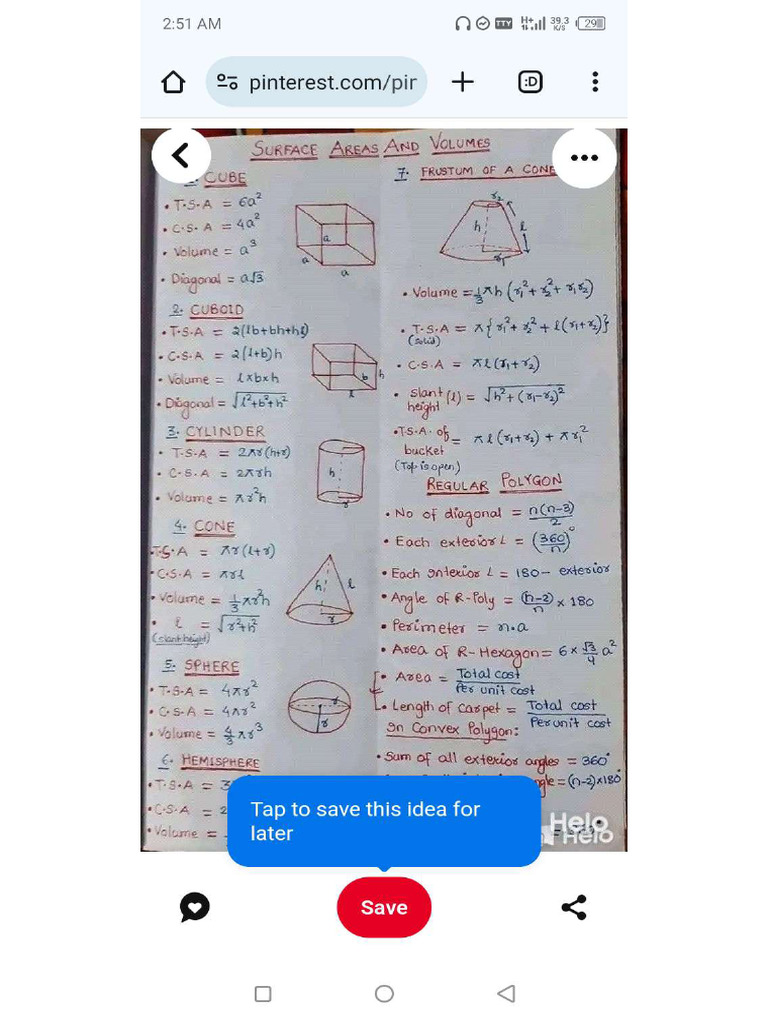 2:51 AM
TTY H+ 39.3 K/S 29
pinterest.com/pir
:D
SURFACE AREAS AND VOLUMES
CUBE
• T.S.A = 6a²
• C.S.A = 4a²
• Volume = a³
• Diagonal = a√3
a
a
a
2. CUBOID
• T.S.A = 2(lb+bh+hl)
• C.S.A = 2(l+b)h
• Volume = l×b×h
• Diagonal = √l²+b²+h²
h
b
l
3. CYLINDER
• T.S.A = 2πr(h+r)
• C.S.A = 2πrh
• Volume = πr²h
h
r
4. CONE
• T.S.A = πr(l+r)
• C.S.A = πrl
• Volume = 1/3 πr²h
• l = √r²+h²
(slant height)
h
l
r
5. SPHERE
• T.S.A = 4πr²
• C.S.A = 4πr²
• Volume = 4/3 πr³
r
r
6. HEMISPHERE
• T.S.A = 3
• C.S.A = 2
• Volume =
7. FRUSTUM OF A CONE
r2
h
l
r1
• Volume = 1/3 πh (r₁²+r₂²+r₁r₂)
• T.S.A = π{r₁²+r₂²+l(r₁+r₂)}
(solid)
• C.S.A = πl(r₁+r₂)
• slant height (l) = √h²+(r₁-r₂)²
• T.S.A. of bucket = πl(r₁+r₂)+πr₁²
(Top is open)
REGULAR POLYGON
• No of diagonal = n(n-3)/2
• Each exterior L = (360/n)°
• Each Interior L = 180 - exterior
• Angle of R-Poly = (n-2)/n × 180
• Perimeter = n.a
• Area of R-Hexagon = 6 × √3/4 a²
• Area = Total cost/Per unit cost
• Length of carpet = Total cost/Per unit cost
In Convex Polygon:
• Sum of all exterior angles = 360°
ngle = (n-2)×180°
Helo
Helo
Tap to save this idea for
later
Save